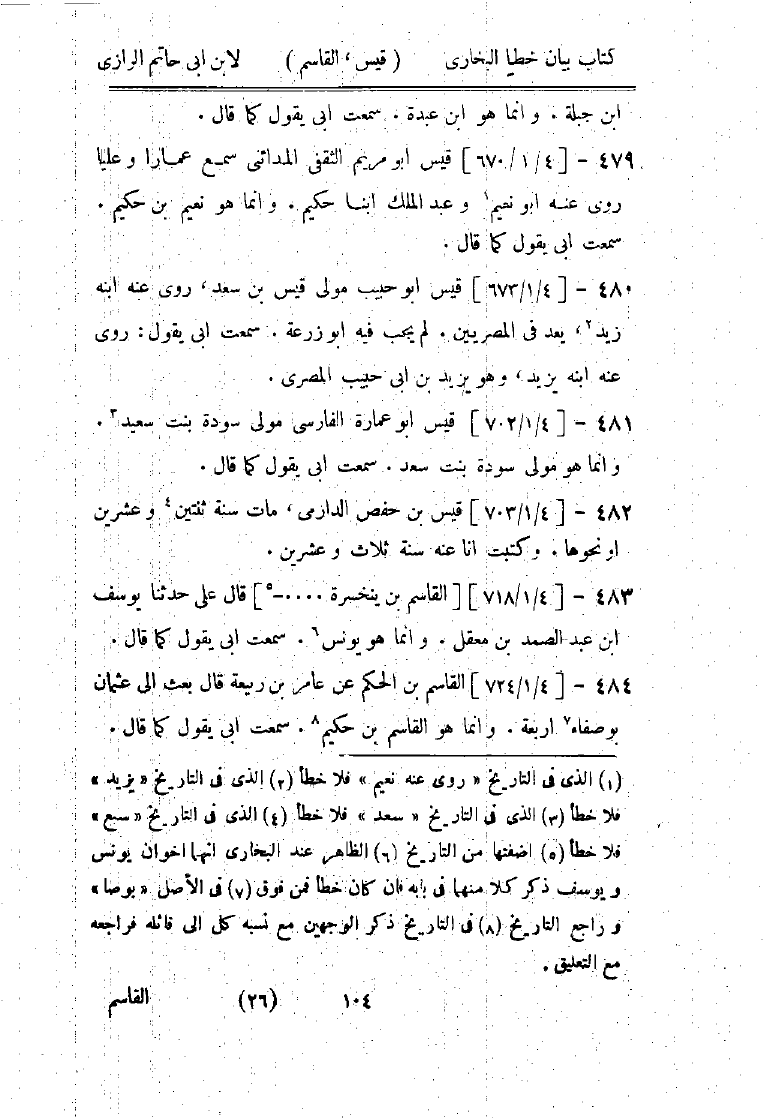 كتاب بيان خطيا البخارى ( قيس ، القاسم ) لابن ابى حاتم الرازى
ابن جبلة . و انما هو ابن عبدة . سمعت ابى يقول كما قال .
٤٧٩ - [ ٦٧٠/١/٤ ] قيس ابو مريم الثقفى المدائنى سمع عمارا و عليا
روى عنه ابو نعيم١ و عبد الملك ابنا حكيم . و انما هو نعيم بن حكيم .
سمعت ابى يقول كما قال .
٤٨٠ - [ ٦٧٣/١/٤ ] قيس ابو حبيب مولى قيس بن سعد ، روى عنه ابنه
زيد٢ ، يعد فى المصريين . لم يجب فيه ابو زرعة . سمعت ابى يقول : روى
عنه ابنه يزيد ، وهو يزيد بن ابى حبيب المصرى .
٤٨١ - [ ٧٠٢/١/٤ ] قيس ابو عمارة الفارسى مولى سودة بنت سعيد٣ .
و انما هو مولى سودة بنت سعد . سمعت ابى يقول كما قال .
٤٨٢ - [ ٧٠٣/١/٤ ] قيس بن حفص الدارمى ، مات سنة ثنتين٤ و عشرين
او نحوها . وكتبت انا عنه سنة ثلاث و عشرين .
٤٨٣ - [ ٧١٨/١/٤ ] [ القاسم بن ينخسرة ....-٥ ] قال على حدثنا يوسف
ابن عبد الصمد بن معقل . و انما هو يونس٦ . سمعت ابى يقول كما قال .
٤٨٤ - [ ٧٢٤/١/٤ ] القاسم بن الحكم عن عامر بن ربيعة قال بعث الى عثمان
بوصفاء٧ اربعة . و انما هو القاسم بن حكيم٨ . سمعت ابى يقول كما قال .
(١) الذى فى التاريخ « روى عنه نعيم » فلا خطأ (٢) الذى فى التاريخ « يزيد »
فلا خطأ (٣) الذى فى التاريخ « سعد » فلا خطأ (٤) الذى فى التاريخ « سبع »
فلا خطأ (٥) اضفتها من التاريخ (٦) الظاهر عند البخارى انهما اخوان يونس
و يوسف ذكر كلا منهما فى بابه فان كان خطأ فمن فوق (٧) فى الأصل « بوصا »
و راجع التاريخ (٨) فى التاريخ ذكر الوجهين مع نسبة كل الى قائله فراجعه
مع التعليق .
١٠٤ (٢٦) القاسم